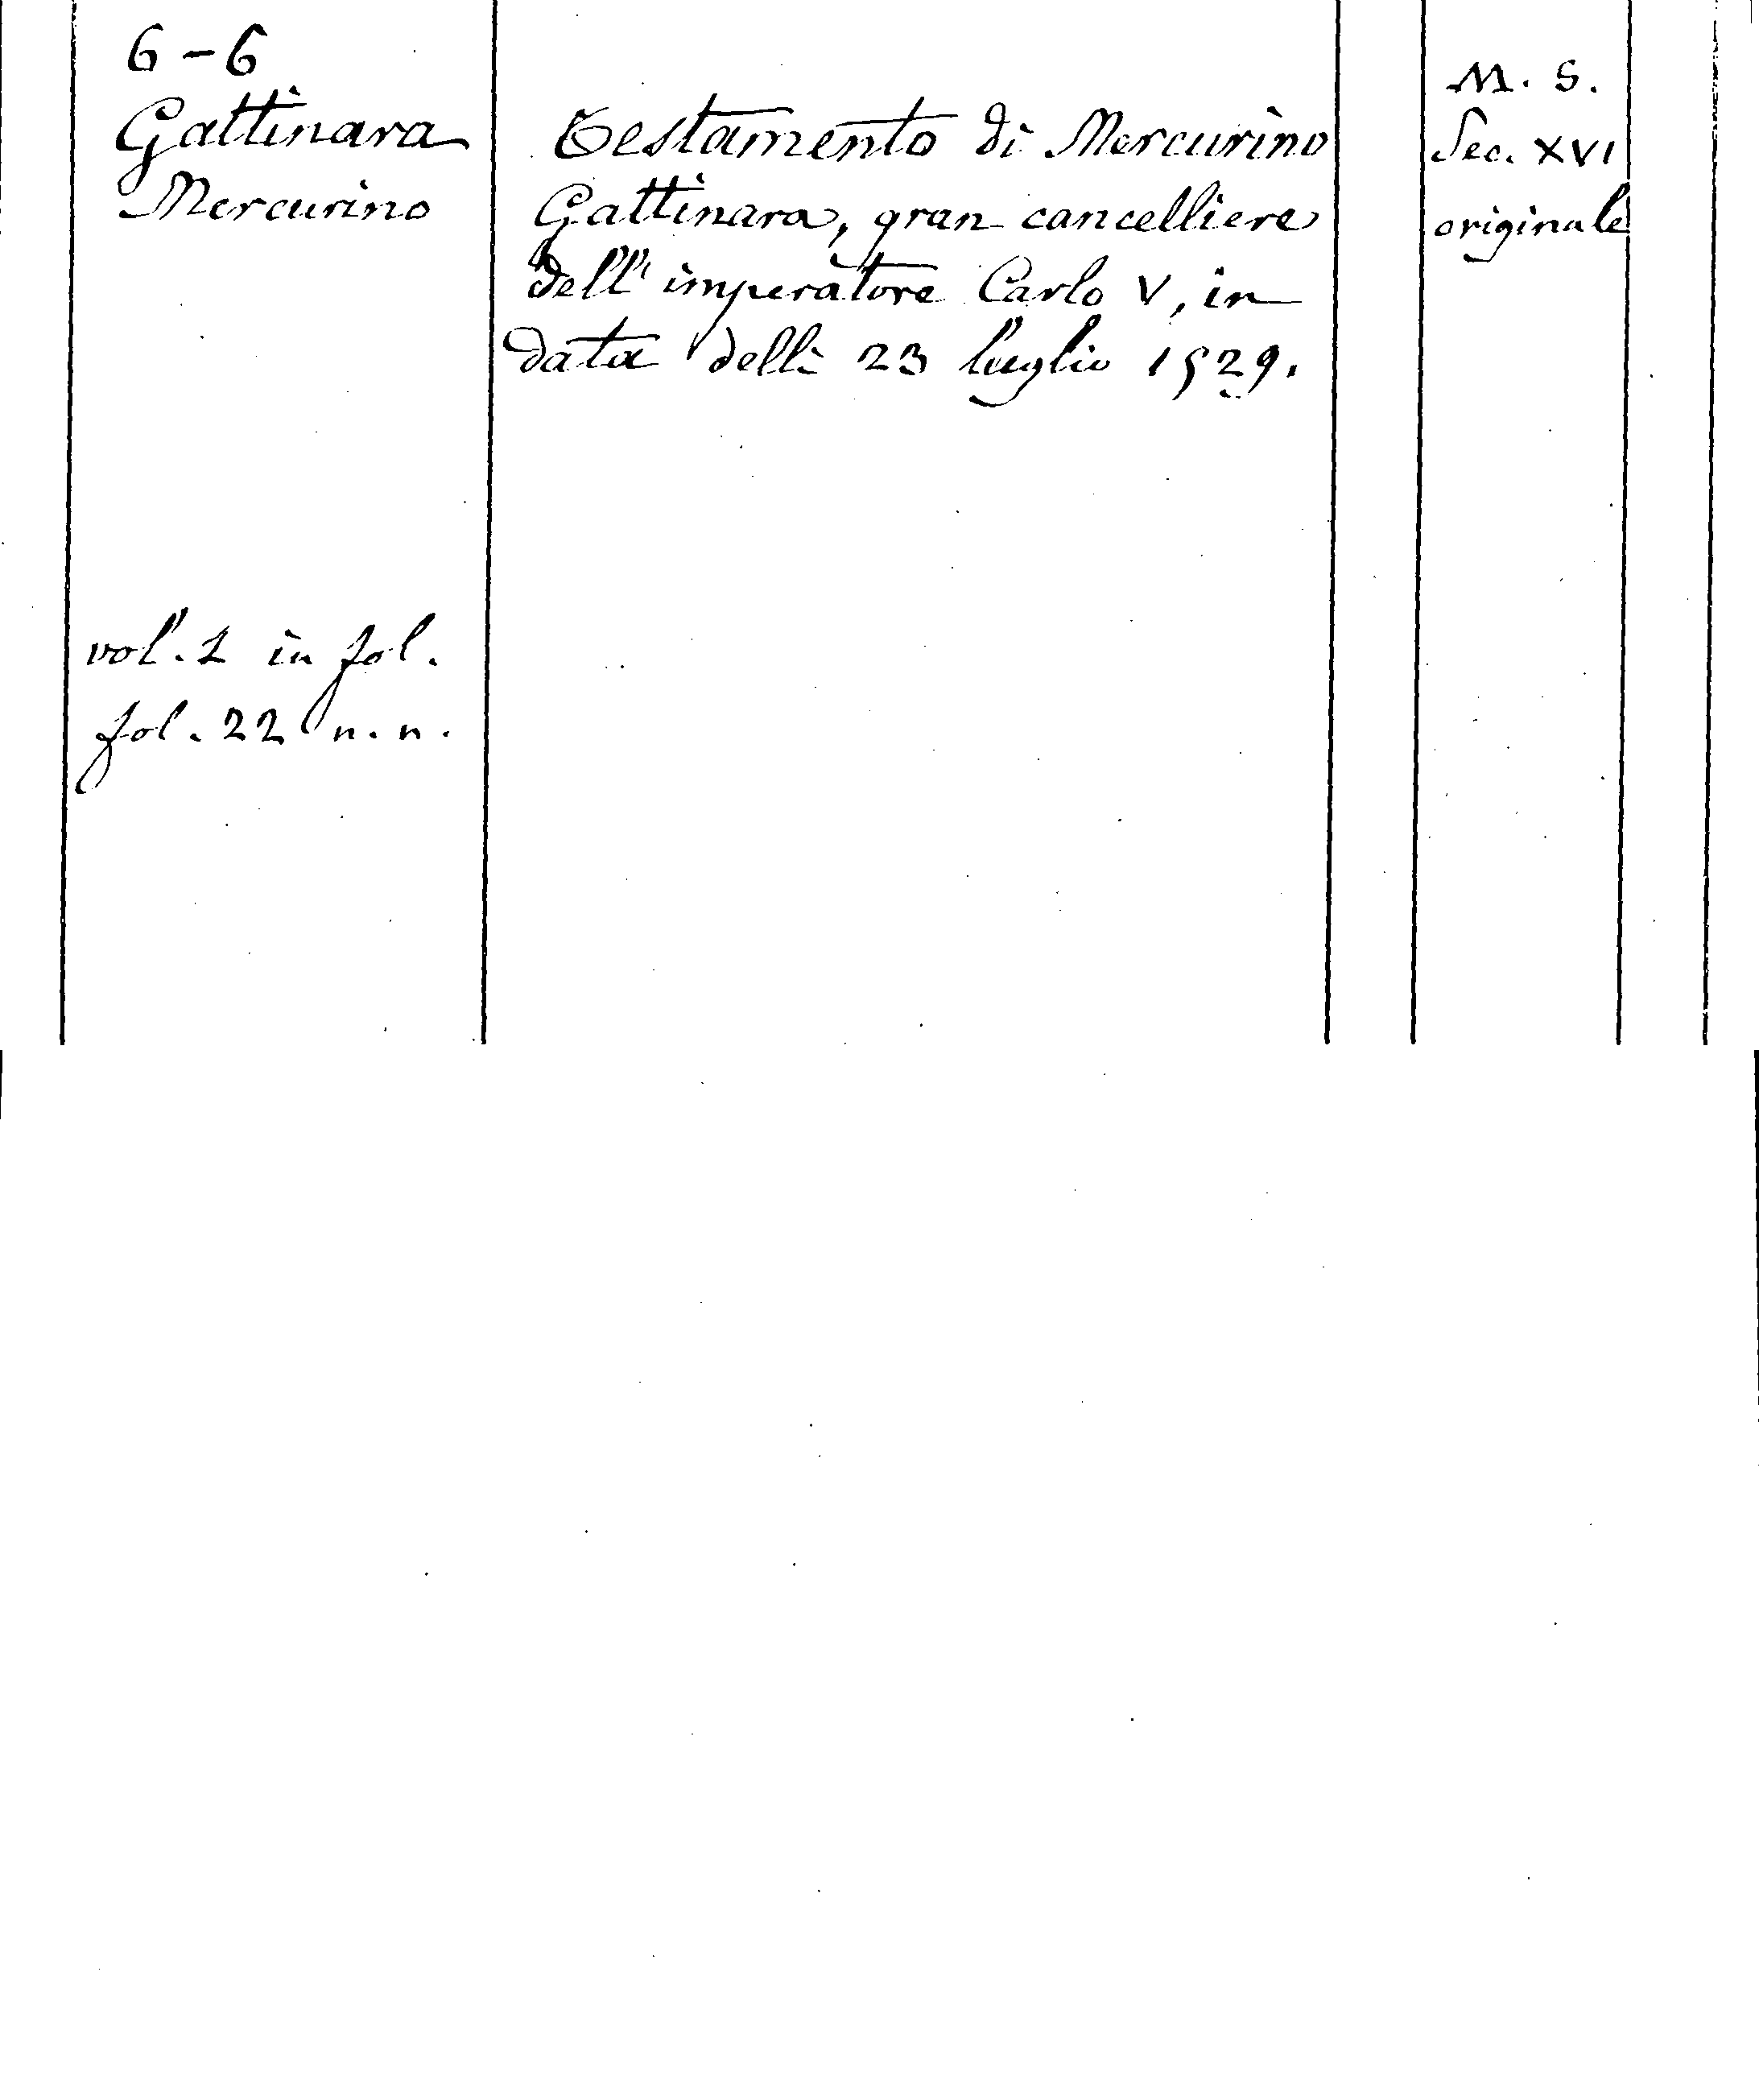 6-6
Gattinara
Mercurino
Testamento di Mercurino
Gattinara, gran cancelliere
dell'imperatore Carlo V, in
data delli 23 luglio 1529.
M. S.
Sec. XVI
originale
vol. 1 in fol.
fol. 22 n.n.